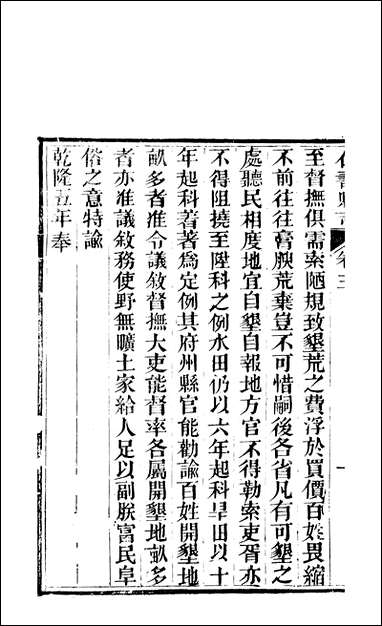 卷三
至督撫俱需索陋規致墾荒之費浮於買價百姓畏縮
不前往往膏腴荒棄豈不可惜嗣後各省凡有可墾之
處聽民相度地宜自墾自報地方官不得勒索吏胥亦
不得阻撓至陞科之例水田仍以六年起科旱田以十
年起科著著為定例其府州縣官能勸諭百姓開墾地
畝多者准令議敘督撫大吏能督率各屬開墾地畝多
者亦准議敘務使野無曠土家給人足以副朕富民阜
俗之意特諭
乾隆五年奉